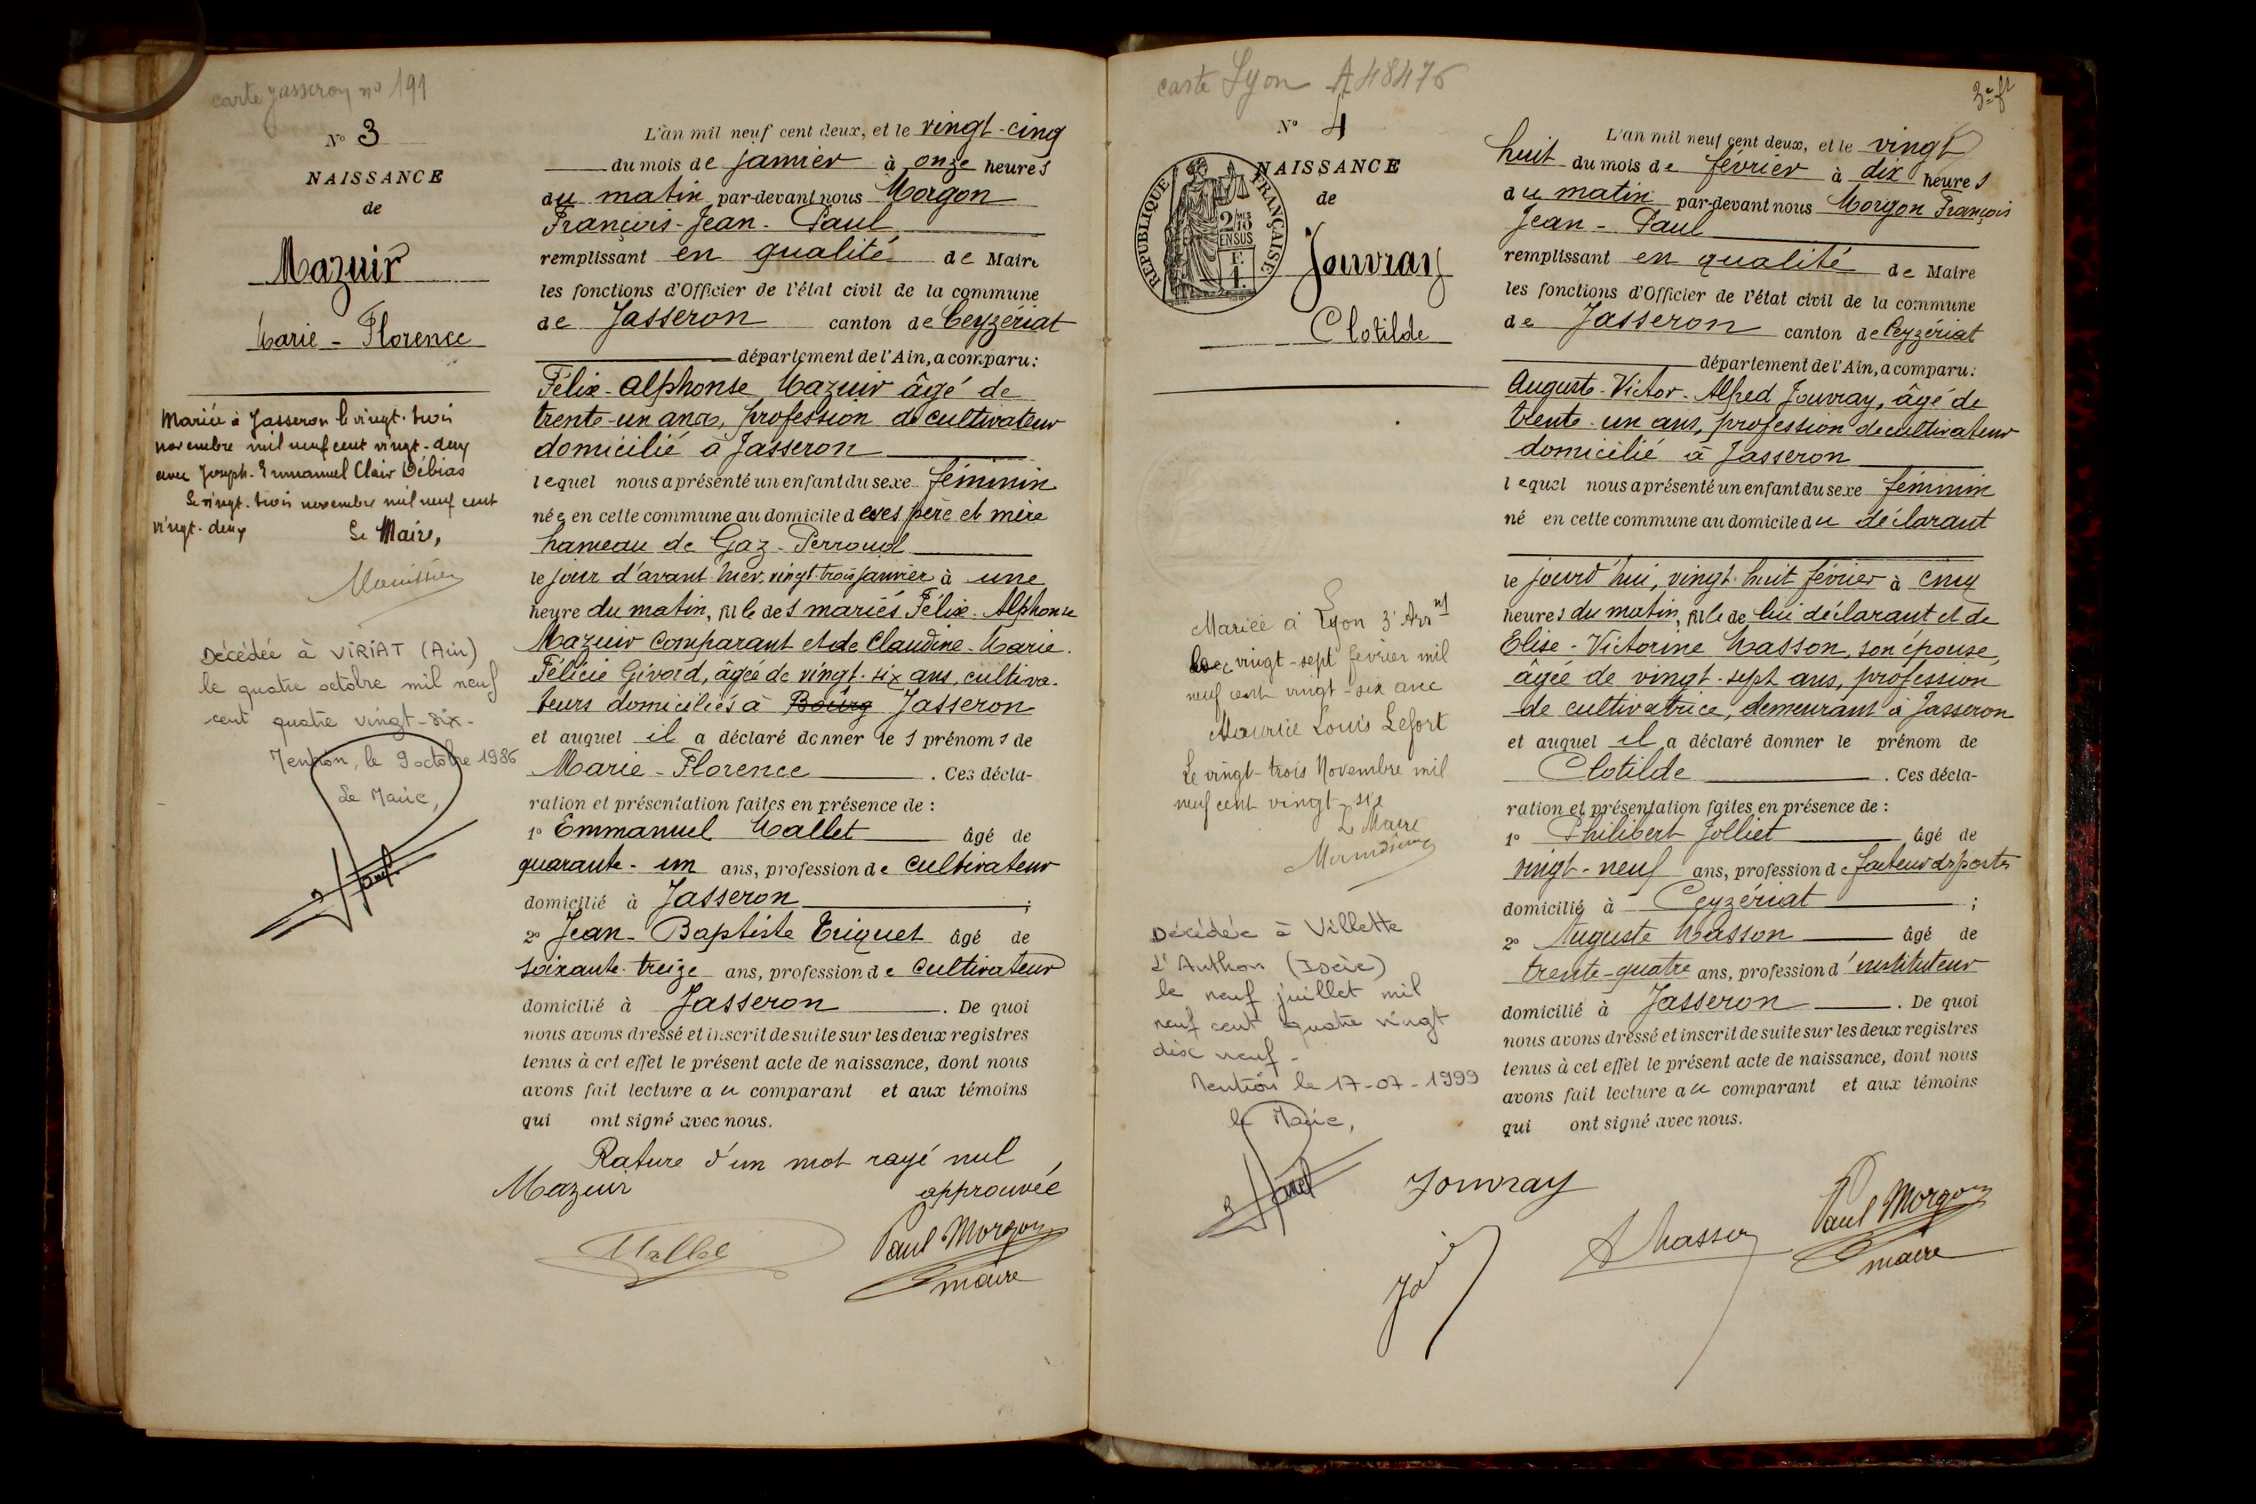 carte Jasseron no 191
No 3
NAISSANCE
de
Mazuir
Marie - Florence
Mariée à Jasseron le vingt-trois
novembre mil neuf cent vingt-deux
avec Joseph-Emmanuel Clair Débias
Le vingt-trois novembre mil neuf cent
vingt-deux
Le Maire,
Décédée à VIRIAT (Ain)
le quatre octobre mil neuf
cent quatre vingt-six-
Mention, le 9 octobre 1986
Le Maire,
L'an mil neuf cent deux, et le vingt-cinq
du mois de janvier à onze heures
du matin par-devant nous Morgon
François-Jean-Paul
remplissant en qualité de Maire
les fonctions d'Officier de l'état civil de la commune
de Jasseron canton de Ceyzériat
département de l'Ain, a comparu:
Félix-Alphonse Mazuir âgé de
trente-un ans, profession de cultivateur
domicilié à Jasseron
lequel nous a présenté un enfant du sexe féminin
née en cette commune au domicile de ses père et mère
hameau de Gaz-Perroud
le jour d'avant-hier, vingt-trois janvier à une
heure du matin, fille des mariés Félix-Alphonse
Mazuir comparant et de Claudine-Marie-
Félicie Givord, âgée de vingt-six ans, cultiva-
teurs domiciliés à Bourg Jasseron
et auquel il a déclaré donner les prénoms de
Marie-Florence. Ces décla-
ration et présentation faites en présence de :
1o Emmanuel Mallet âgé de
quarante-un ans, profession de cultivateur
domicilié à Jasseron ;
2o Jean-Baptiste Triquet âgé de
soixante-treize ans, profession de cultivateur
domicilié à Jasseron. De quoi
nous avons dressé et inscrit de suite sur les deux registres
tenus à cet effet le présent acte de naissance, dont nous
avons fait lecture au comparant et aux témoins
qui ont signé avec nous.
Rature d'un mot rayé nul
approuvée
Mazuir
Mallet
Paul Morgon
maire
carte Lyon A 48476
3e ft
No 4
NAISSANCE
de
RÉPUBLIQUE FRANÇAISE
2/10es
EN SUS
1 F.
Jouvray
Clotilde
Mariée à Lyon 3e Arrt
le vingt-sept février mil
neuf cent vingt-six avec
Maurice Louis Lefort
Le vingt-trois Novembre mil
neuf cent vingt-six
Le Maire
Décédée à Villette
d'Anthon (Isère)
le neuf juillet mil
neuf cent quatre vingt
dix neuf-
Mention le 17-07-1999
le Maire,
L'an mil neuf cent deux, et le vingt
huit du mois de février à dix heures
du matin par-devant nous Morgon François
Jean-Paul
remplissant en qualité de Maire
les fonctions d'Officier de l'état civil de la commune
de Jasseron canton de Ceyzériat
département de l'Ain, a comparu:
Auguste-Victor-Alfred Jouvray, âgé de
trente-un ans, profession de cultivateur
domicilié à Jasseron
lequel nous a présenté un enfant du sexe féminin
né en cette commune au domicile du déclarant
le jourd'hui, vingt-huit février à cinq
heures du matin, fille de lui déclarant et de
Elise-Victorine Masson, son épouse,
âgée de vingt-sept ans, profession
de cultivatrice, demeurant à Jasseron
et auquel il a déclaré donner le prénom de
Clotilde. Ces décla-
ration et présentation faites en présence de :
1o Philibert Jolliet âgé de
vingt-neuf ans, profession de facteur des postes
domicilié à Ceyzériat ;
2o Auguste Masson âgé de
trente-quatre ans, profession d'instituteur
domicilié à Jasseron. De quoi
nous avons dressé et inscrit de suite sur les deux registres
tenus à cet effet le présent acte de naissance, dont nous
avons fait lecture au comparant et aux témoins
qui ont signé avec nous.
Jouvray
A Masson
Paul Morgon
maire